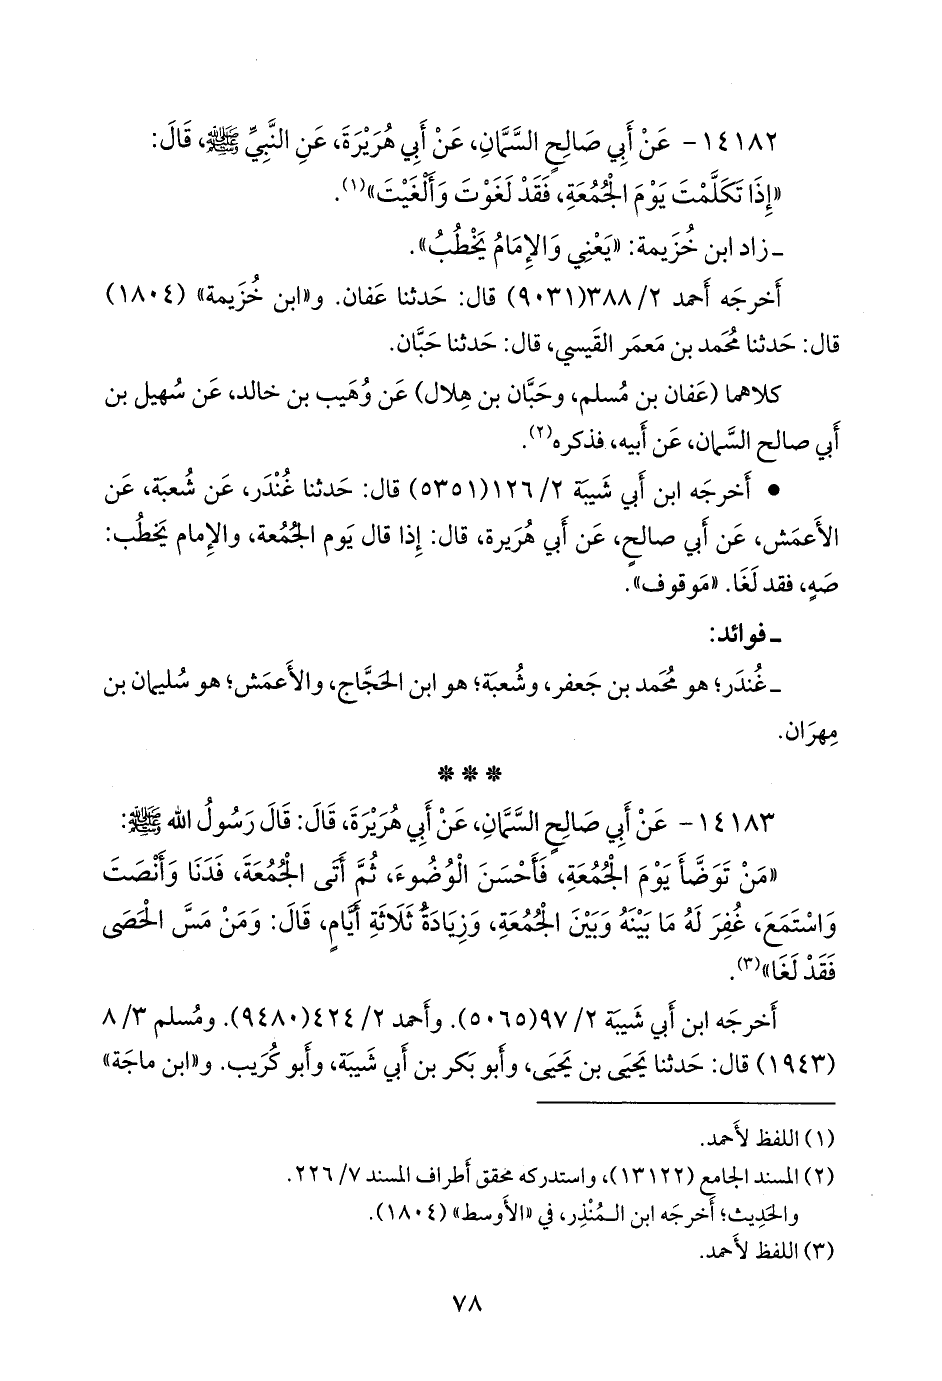 ١٤١٨٢- عَنْ أَبِي صَالِحٍ السَّمَّانِ، عَنْ أَبِي هُرَيْرَةَ، عَنِ النَّبِيِّ ﷺ، قَالَ:
«إِذَا تَكَلَّمْتَ يَوْمَ الْجُمُعَةِ، فَقَدْ لَغَوْتَ وَأَلْغَيْتَ»(١).
ـ زاد ابن خُزَيمة: «يَعْنِي وَالإِمَامُ يَخْطُبُ».
أَخرجَه أَحمد ٢/ ٣٨٨(٩٠٣١) قال: حَدثنا عَفان. و«ابن خُزَيمة» (١٨٠٤)
قال: حَدثنا مُحَمد بن مَعمَر القَيسي، قال: حَدثنا حَبَّان.
كلاهما (عَفان بن مُسلم، وحَبَّان بن هِلال) عَن وُهَيب بن خالد، عَن سُهيل بن
أَبي صالح السَّمان، عَن أَبيه، فذكره(٢).
• أَخرجَه ابن أَبي شَيبَة ٢/ ١٢٦(٥٣٥١) قال: حَدثنا غُنْدَر، عَن شُعبَة، عَن
الأَعمَش، عَن أَبي صالحٍ، عَن أَبي هُرَيرة، قال: إِذا قال يَوم الجُمُعة، والإِمام يَخطُب:
صَهٍ، فقد لَغَا. «مَوقوف».
ـ فوائد:
ـ غُندَر؛ هو مُحَمد بن جَعفر، وشُعبَة؛ هو ابن الحَجَّاج، والأَعمَش؛ هو سُليمان بن
مِهرَان.
***
١٤١٨٣- عَنْ أَبِي صَالِحٍ السَّمَّانِ، عَنْ أَبِي هُرَيْرَةَ، قَالَ: قَالَ رَسُولُ الله ﷺ:
«مَنْ تَوَضَّأَ يَوْمَ الْجُمُعَةِ، فَأَحْسَنَ الْوُضُوءَ، ثُمَّ أَتَى الْجُمُعَةَ، فَدَنَا وَأَنْصَتَ
وَاسْتَمَعَ، غُفِرَ لَهُ مَا بَيْنَهُ وَبَيْنَ الْجُمُعَةِ، وَزِيَادَةُ ثَلَاثَةِ أَيَّامٍ، قَالَ: وَمَنْ مَسَّ الْحَصَى
فَقَدْ لَغَا»(٣).
أَخرجَه ابن أَبي شَيبَة ٢/ ٩٧(٥٠٦٥). وأَحمد ٢/ ٤٢٤(٩٤٨٠). ومُسلم ٣/ ٨
(١٩٤٣) قال: حَدثنا يَحيَى بن يَحيَى، وأَبو بَكر بن أَبي شَيبَة، وأَبو كُرَيب. و«ابن ماجَة»
(١) اللفظ لأَحمد.
(٢) المسند الجامع (١٣١٢٢)، واستدركه محقق أَطراف المسند ٧/ ٢٢٦.
والحَدِيث؛ أَخرجَه ابن المُنْذِر، في «الأَوسط» (١٨٠٤).
(٣) اللفظ لأَحمد.
٧٨